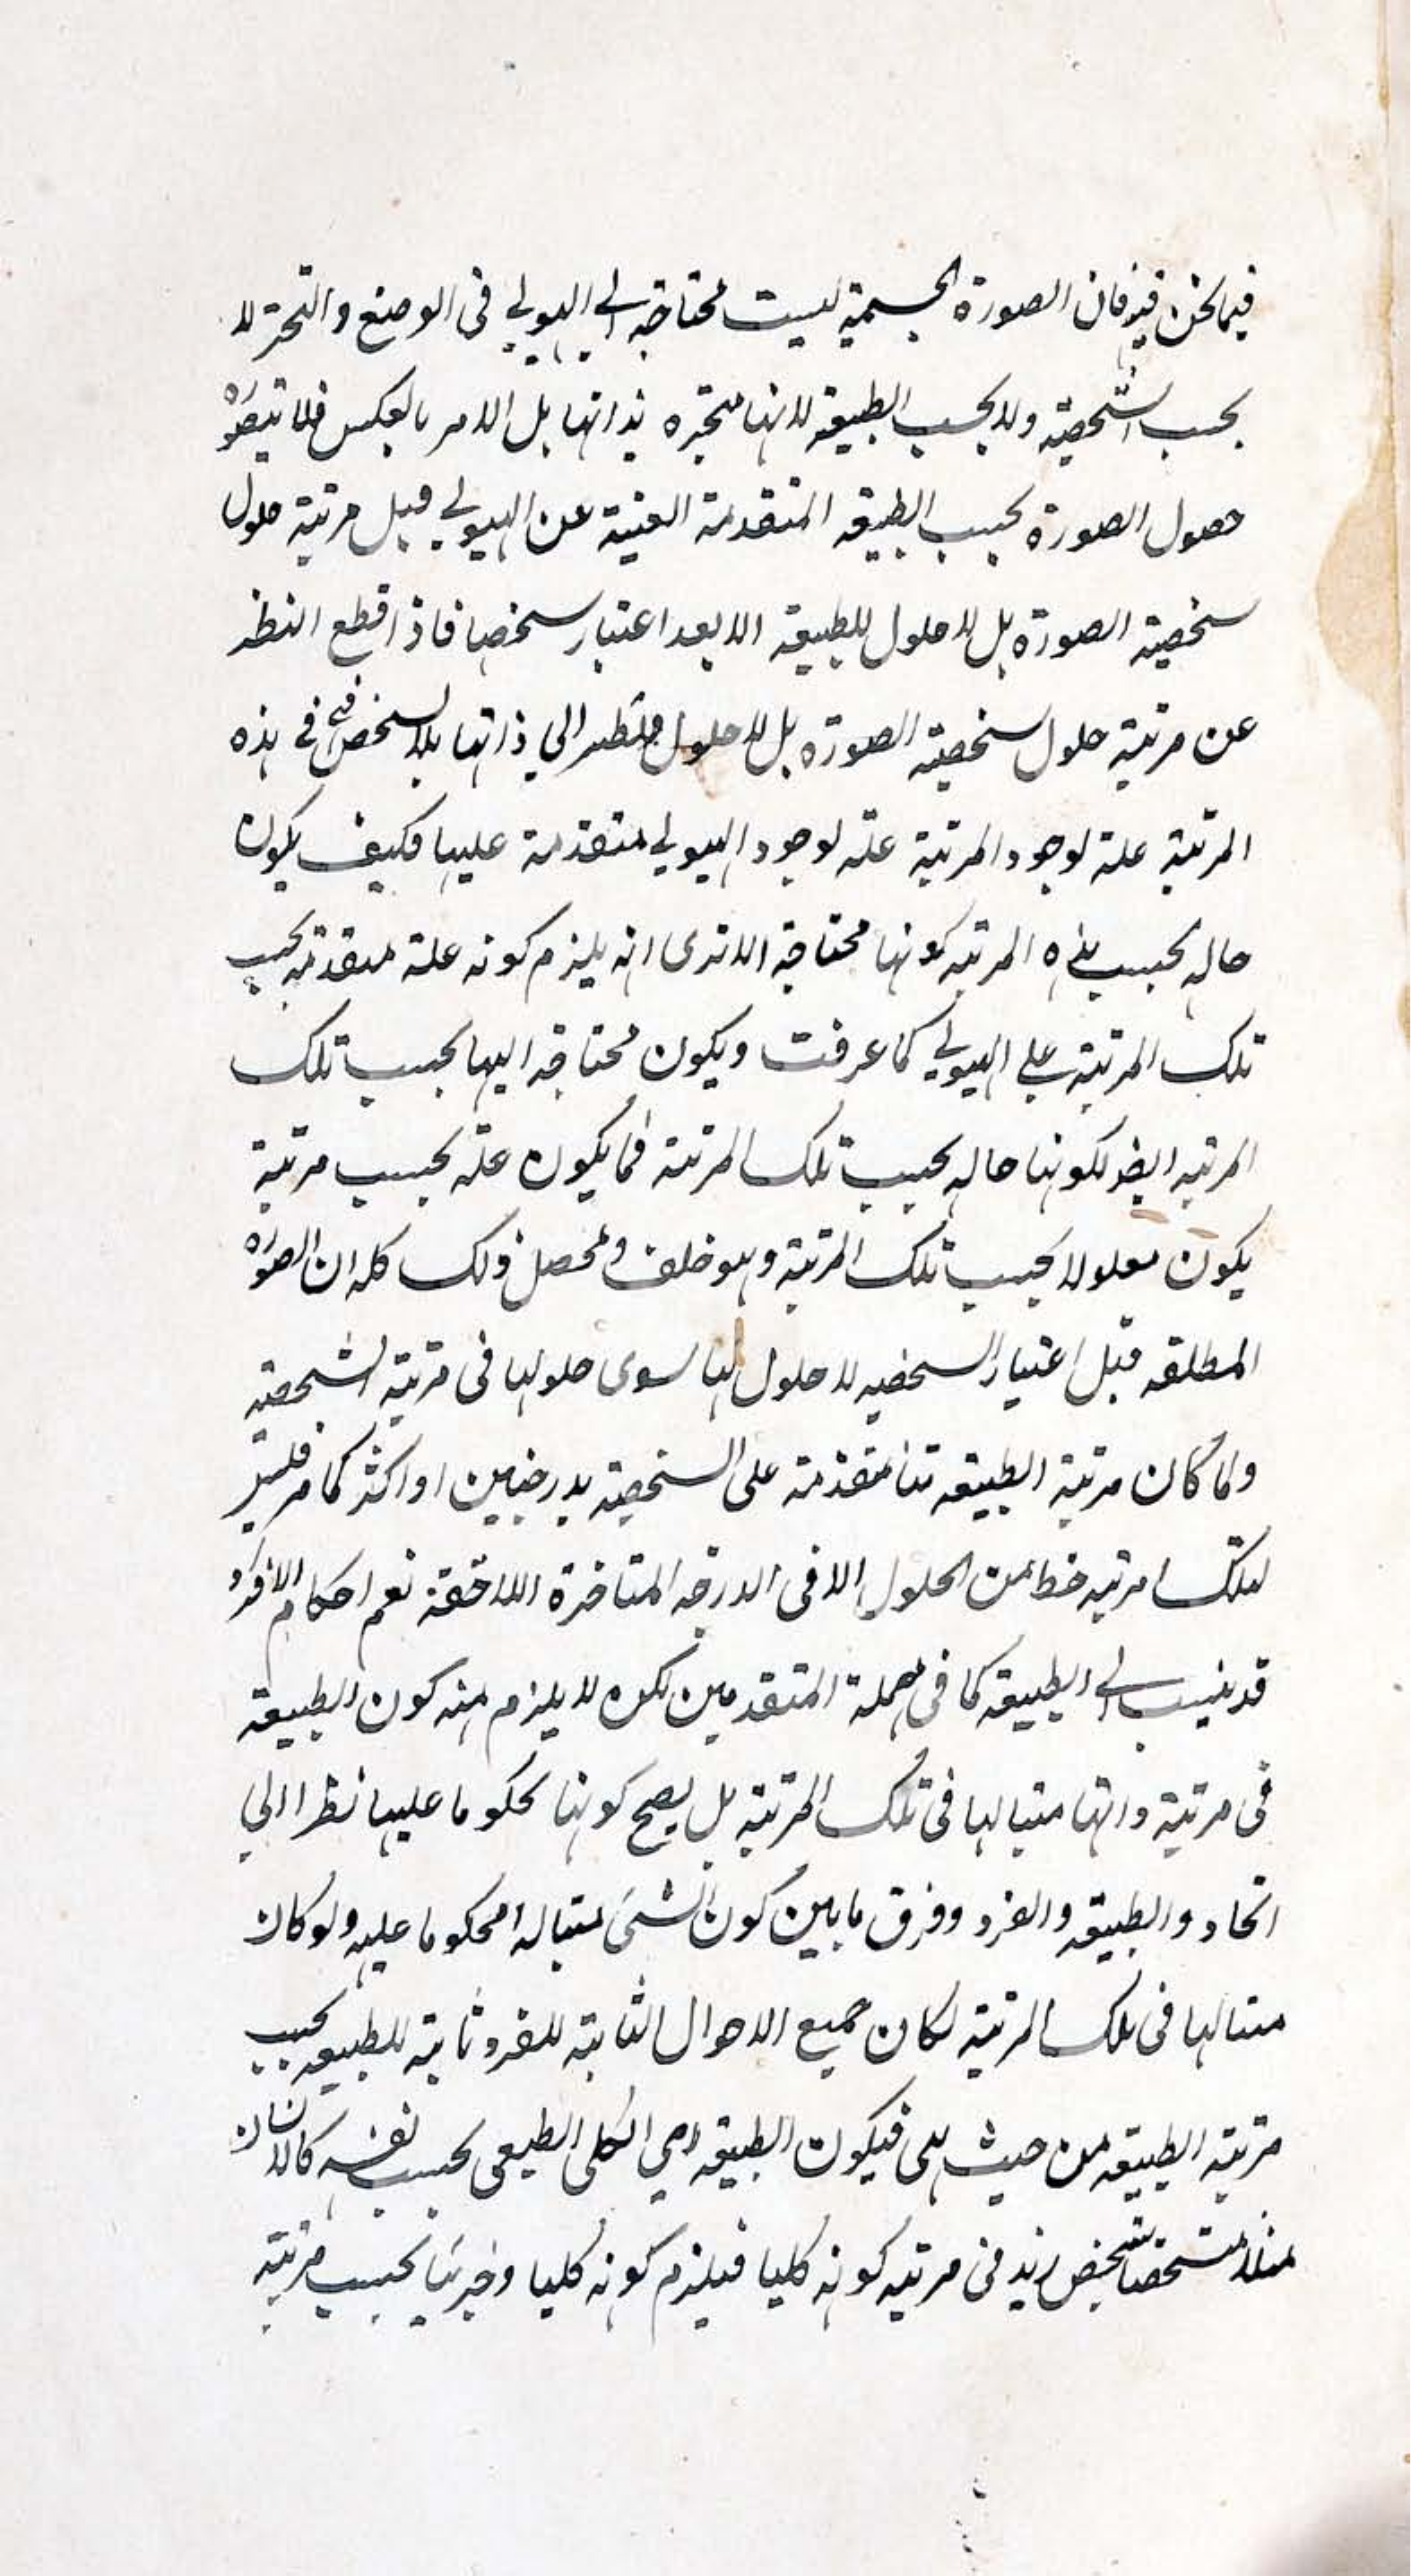 فيما نحن فيه فان الصورة الجسمية ليست محتاجة الى الهيولى فى الوضع والتحيز لا
بحسب الشخصية ولا بحسب الطبيعة لانها متحيزه بذاتها بل الامر بالعكس فلا يتصور
حصول الصورة بحسب الطبيعة المتقدمة الغنية عن الهيولى قبل مرتبة حلول
شخصية الصورة بل لا حلول للطبيعة الا بعد اعتبار شخصها فاذا قطع النظر
عن مرتبة حلول شخصية الصورة بل لا حلول بالنظر الى ذاتها بلا تشخص فهى فى هذه
المرتبة علة لوجود المرتبة علة لوجود الهيولى متقدمة عليها فكيف يكون
حاله بحسب هذه المرتبة كونها محتاجة الا ترى انه يلزم كونه علة متقدمة بحسب
تلك المرتبة على الهيولى كما عرفت ويكون محتاجة اليها بحسب تلك
المرتبه ايضا لكونها حاله بحسب تلك المرتبة فما يكون علة بحسب مرتبة
يكون معلولا بحسب تلك المرتبة وهو خلف ومحصل ذلك كله ان الصورة
المطلقه قبل اعتبار الشخصيه لا حلول لها سوى حلولها فى مرتبة الشخصية
ولما كان مرتبة الطبيعه متقدمة على الشخصية بدرجتين او اكثر كما مر فليس
لتلك امرتبه حظا من الحلول الا فى الدرجه المتاخرة اللاحقة نعم احكام الافراد
قد ينسب الى الطبيعه كما فى مهملة المتقدمين لكن لا يلزم منه كون الطبيعة
فى مرتبة ذاتها مثبتا لها فى تلك المرتبة بل يصح كونها محكوما عليها نظرا الى
اتحاد والطبيعة والفرد وفرق ما بين كون الشئ مثبتا له محكوما عليه ولو كان
مثبتا لها فى تلك المرتبة لكان جميع الاحوال الثابتة للفرد ثابتة للطبيعة بحسب
مرتبة الطبيعة من حيث هى فيكون الطبيعة اى الكلى الطبيعى بحسب نفسه كالانسان
مثلا متشخصا بتشخص زيد فى مرتبه كونه كليا فيلزم كونه كليا وجزئيا بحسب مرتبة